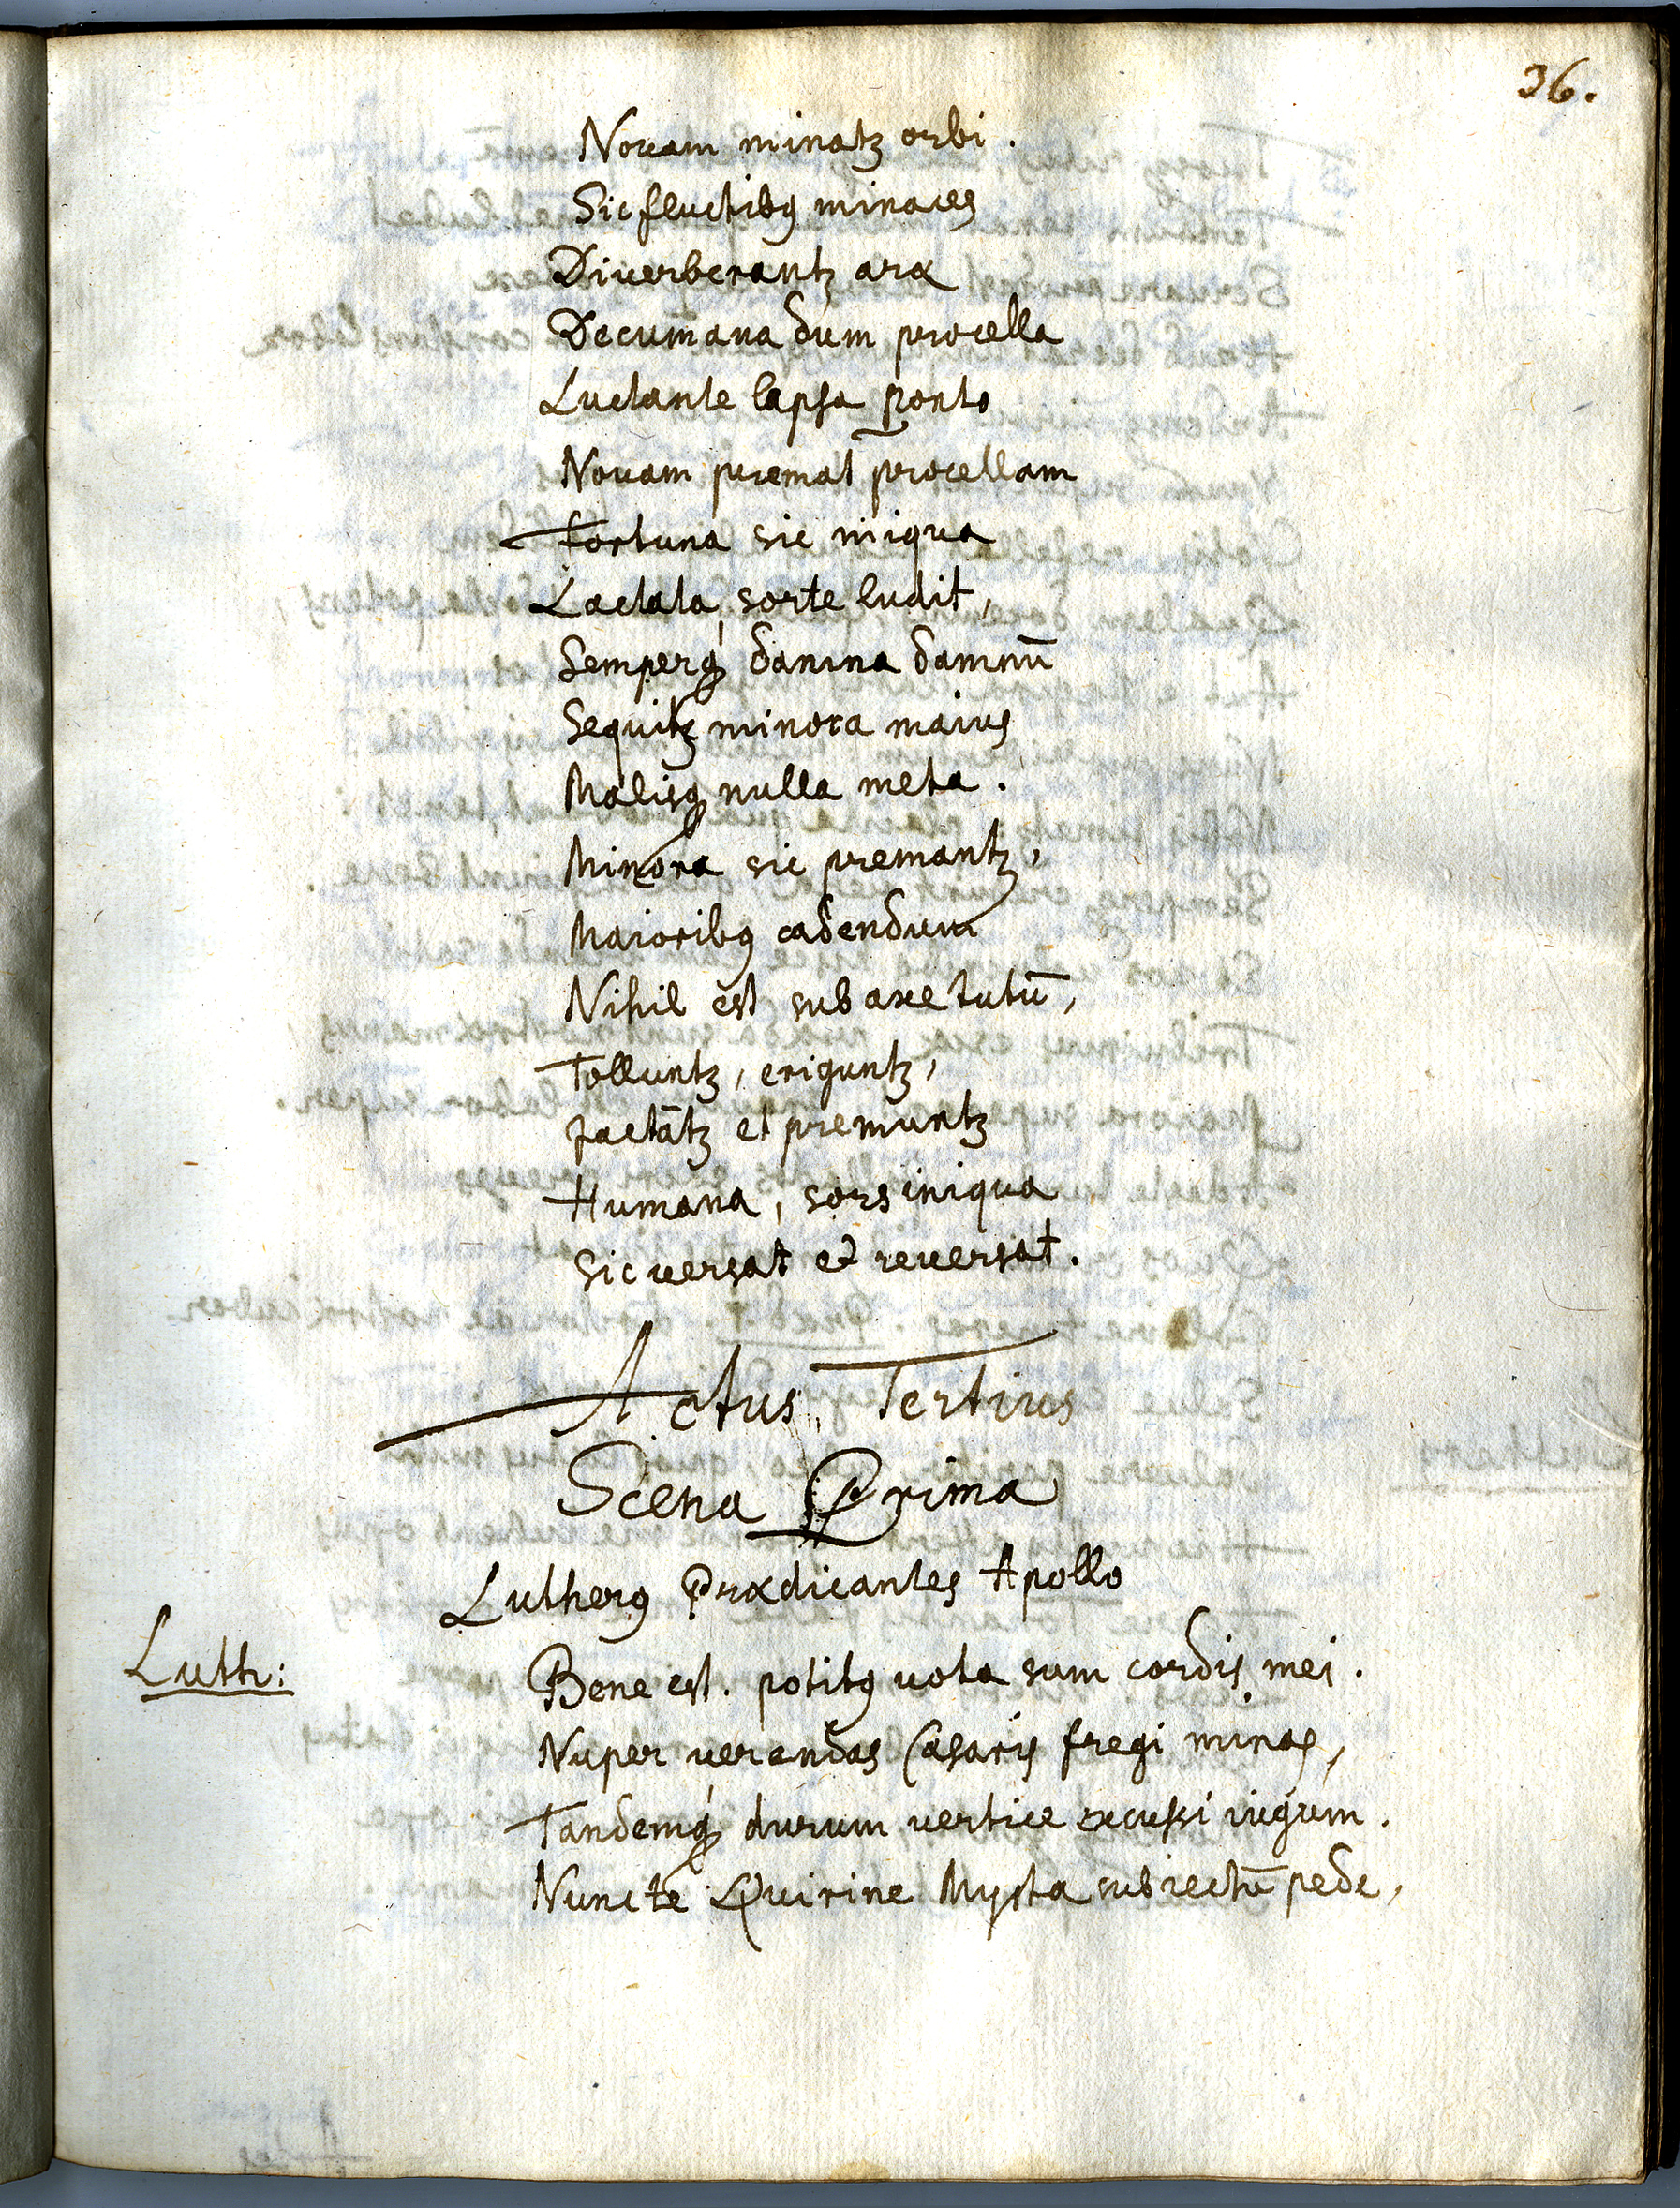 36.
Novam minatꝫ orbi.
Sic fluctibꝯ minaces
Diverberantꝫ aræ
Decumana dum procella
Luctante lapsa ponto
Novam premat procellam
Fortuna sic iniqua
Lactata sorte ludit,
Semperq́ꝫ damna damnū
Sequitꝫ minora maius
Malisqꝫ nulla meta.
Minora sic premantꝫ,
Maioribꝯ cadendum
Nihil est sub axe tutū,
Tolluntꝫ, eriguntꝫ,
Jactātꝫ et premuntꝫ
Humana, sors iniqua
Sic versat et reversat.
Actus Tertius
Scena Prima
Lutherꝯ Prædicantes Apollo
Luth: Bene est. potitꝯ vota sum cordis mei.
Nuper verendas Cæsaris fregi minas,
Tandemq́ꝫ durum vertice excussi iugum.
Nunc te Quirine Mysta subiectū pede,